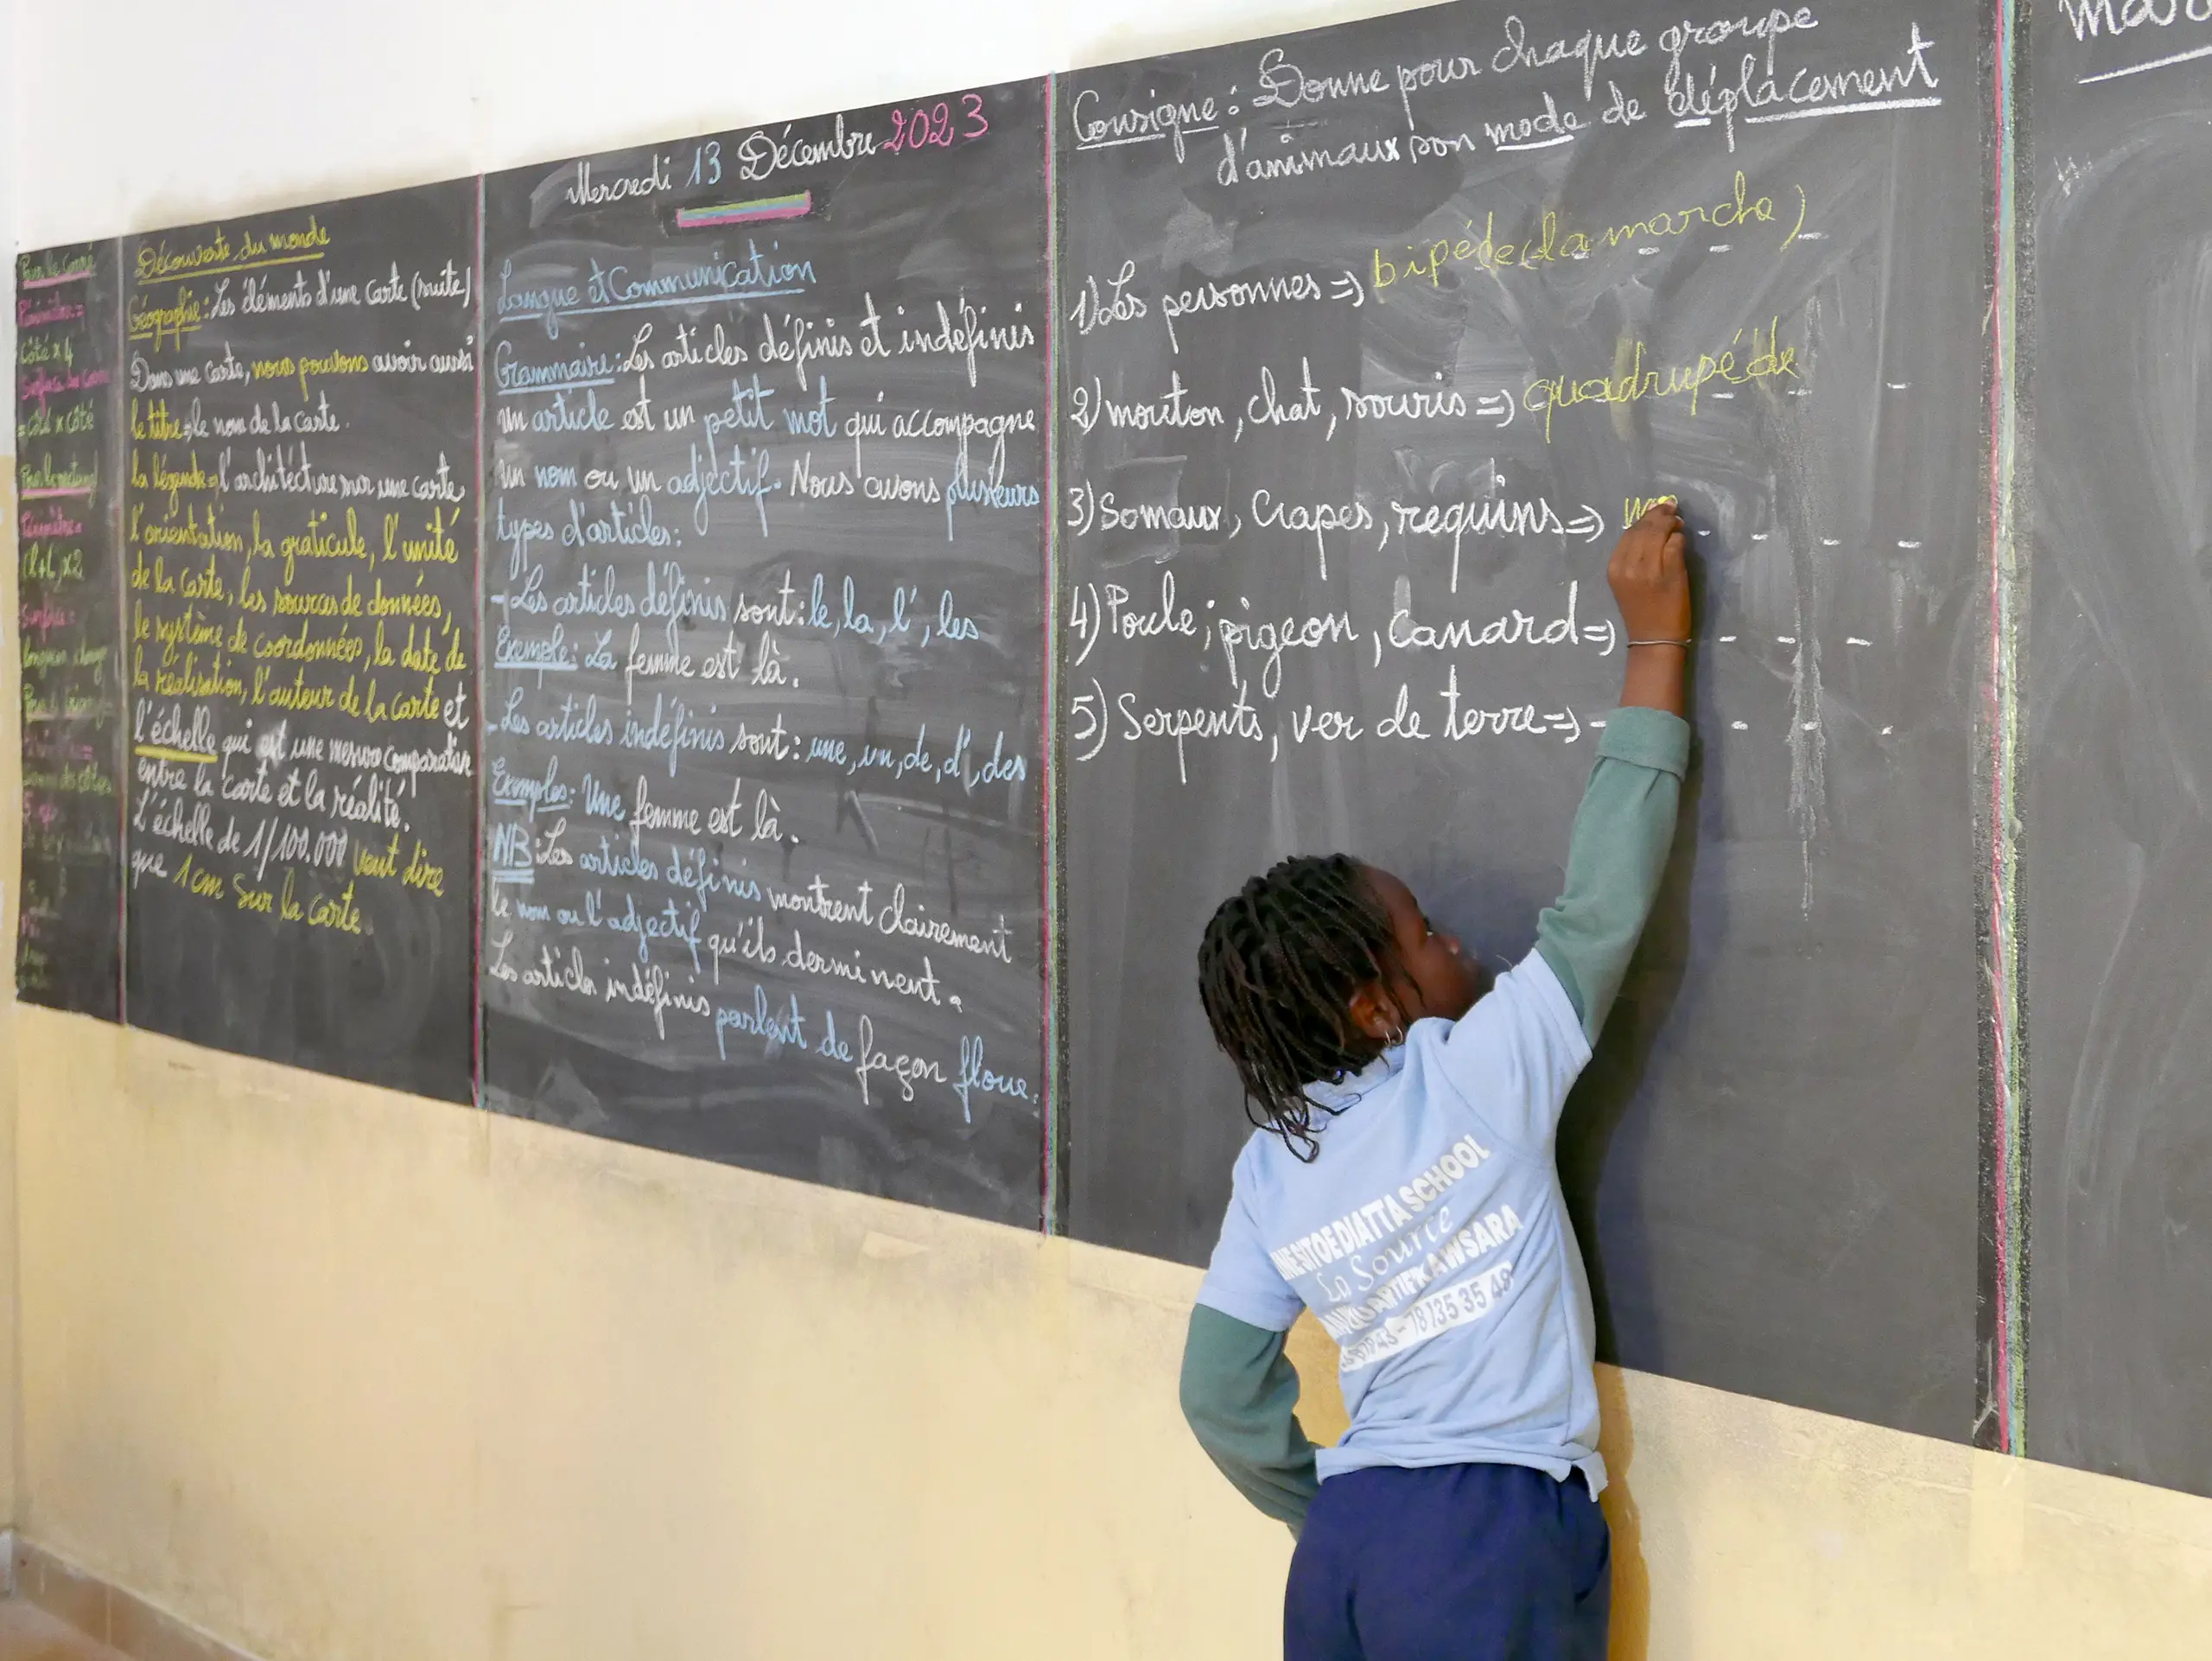 Pour le carré
Périmètre =
Côté x 4
Surface du carré
= côté x côté
Périmètre =
(L+l) x2
Surface =
Découverte du monde
Géographie : Les éléments d'une carte (suite)
Dans une carte, nous pouvons avoir aussi
le titre : le nom de la carte.
la légende = l'architécture sur une carte,
l'orientation, la graticule, l'unité
de la carte, les sources de données,
le système de coordonnées, la date de
la réalisation, l'auteur de la carte et
l'échelle qui est une mesure comparative
entre la carte et la réalité.
L'échelle de 1/100.000 veut dire
que 1 cm sur la carte.
Mercredi 13 Décembre 2023
Langue et Communication
Grammaire : Les articles définis et indéfinis
Un article est un petit mot qui accompagne
un nom ou un adjectif. Nous avons plusieurs
types d'articles :
- Les articles définis sont : le, la, l', les
Exemple : La femme est là.
- Les articles indéfinis sont : une, un, de, d', des
Exemples : Une femme est là.
NB : Les articles définis montrent clairement
le nom ou l'adjectif qu'ils derminent.
Les articles indéfinis parlent de façon floue.
Consigne : Donne pour chaque groupe
d'animaux son mode de déplacement
1) Les personnes => bipéde (la marche)
2) mouton, chat, souris => quadrupéde
3) Somaux, Crapes, requins =>
4) Poule ; pigeon, Canard =>
5) Serpents, ver de terre =>
DIATTA SCHOOL
La Source